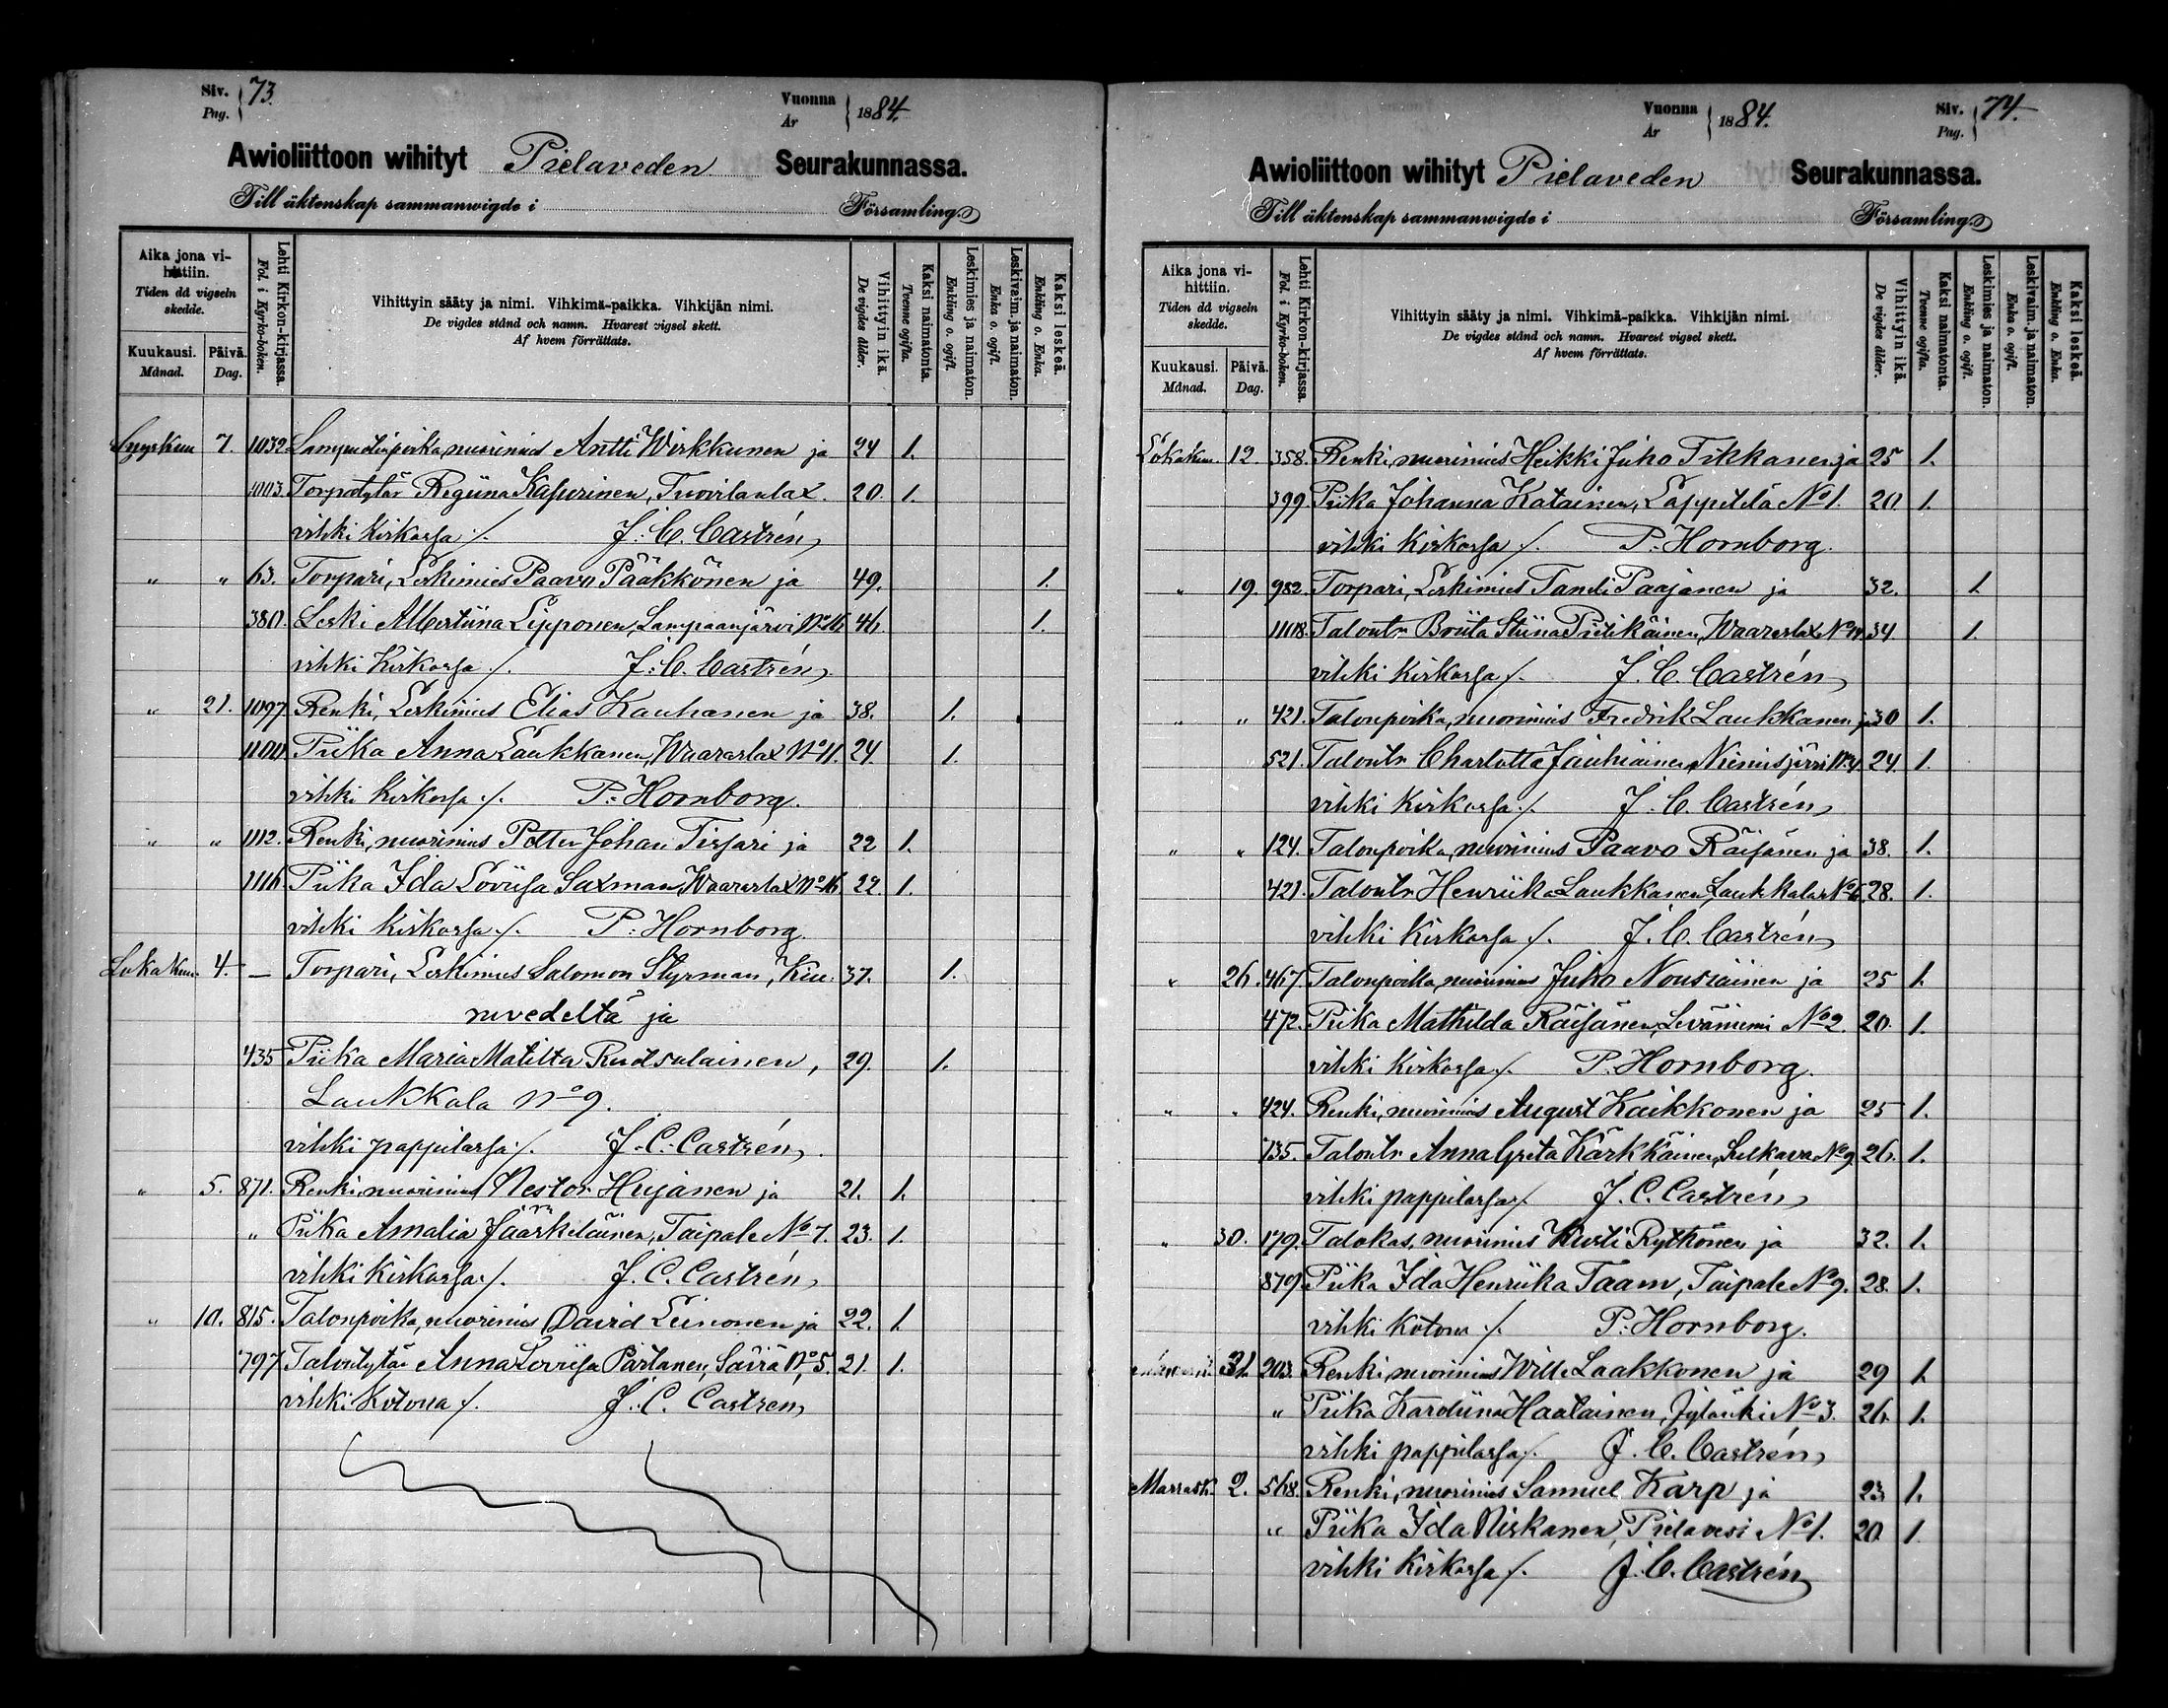 Siv. Pag. } 73.
Vuonna År } 1884.
Awioliittoon wihityt Pielaveden Seurakunnassa.
Till äktenskap sammanwigde i Församling.
Aika jona vihittiin. Tiden då vigseln skedde.
Kuukausi. Månad.
Päivä. Dag.
Lehti Kirkon-kirjassa. Fol. i Kyrko-boken.
Vihittyin sääty ja nimi. Vihkimä-paikka. Vihkijän nimi.
De vigdes stånd och namn. Hvarest vigsel skett.
Af hvem förrättats.
Vihittyin ikä. De vigdes ålder.
Kaksi naimatonta. Tvenne ogifta.
Leskimies ja naimaton. Enkling o. ogift.
Leskivaim. ja naimaton. Enka o. ogift.
Kaksi leskeä. Enkling o. Enka.
Syyskuu 7. 1032 Lampuotinpoika, nuorimies Antti Wirkkunen ja 24 1.
1003. Torpatytär Regina Kasurinen, Tuovilanlax. 20. 1.
vihki Kirkossa ./. J. C. Castrén
" " 63. Torpari, Leskimies Paavo Pääkkönen ja 49. 1.
380. Leski Albertiina Lipponen, Lampaanjärvi No 16. 46. 1.
vihki Kirkossa ./. J. C. Castrén
" 21. 1097. Renki, Leskimies Elias Kauhanen ja 38. 1.
1100. Piika Anna Laukkanen, Waaraslax No 11. 24. 1.
vihki Kirkossa ./. P. Hornborg.
" " 1112. Renki, nuorimies Petter Johan Tissari ja 22 1.
1116. Piika Ida Loviisa Saxman, Waaraslax No 16. 22. 1.
vihki Kirkossa ./. P. Hornborg.
Lokakuu 4. — Torpari, Leskimies Salomon Styrman, Kiu- 37. 1.
ruvedeltä ja
435 Piika Maria Matilta Ruotsalainen, 29. 1.
Laukkala No 9.
vihki pappilassa ./. J. C. Castrén
" 5. 871. Renki, nuorimies Nestor Hujanen ja 21. 1.
" Piika Amalia Jääskeläinen, Taipale No 7. 23. 1.
vihki Kirkossa ./. J. C. Castrén
" 10. 815. Talonpoika, nuorimies David Leinonen ja 22. 1.
797. Talontytär Anna Loviisa Partanen, Säviä No 5. 21. 1.
vihki Kotona ./. J. C. Castrén
Vuonna År } 1884.
Siv. Pag. } 74.
Awioliittoon wihityt Pielaveden Seurakunnassa.
Till äktenskap sammanwigde i Församling.
Aika jona vihittiin. Tiden då vigseln skedde.
Kuukausi. Månad.
Päivä. Dag.
Lehti Kirkon-kirjassa. Fol. i Kyrko-boken.
Vihittyin sääty ja nimi. Vihkimä-paikka. Vihkijän nimi.
De vigdes stånd och namn. Hvarest vigsel skett.
Af hvem förrättats.
Vihittyin ikä. De vigdes ålder.
Kaksi naimatonta. Tvenne ogifta.
Leskimies ja naimaton. Enkling o. ogift.
Leskivaim. ja naimaton. Enka o. ogift.
Kaksi leskeä. Enkling o. Enka.
Lokakuu 12. 358. Renki, nuorimies Heikki Juho Tikkanen ja 25 1.
399. Piika Johanna Katainen, Lappetelä No 1. 20. 1.
vihki Kirkossa ./. P. Hornborg.
" 19. 982. Torpari, Leskimies Taneli Paajanen ja 32. 1.
1108. Talontr Briita Stiina Pietikäinen, Waaraslax No 14. 34. 1.
vihki Kirkossa ./. J. C. Castrén
" " 421. Talonpoika, nuorimies Fredrik Laukkanen ja 30 1.
521. Talontr Charlotta Jauhiainen, Niemisjärvi No 4. 24. 1.
vihki Kirkossa ./. J. C. Castrén
" " 124. Talonpoika, nuorimies Paavo Räisänen ja 38. 1.
421. Talontr Henriika Laukkanen, Laukkala No 6. 28. 1.
vihki Kirkossa ./. J. C. Castrén
" 26. 467. Talonpoika, nuorimies Juho Nousiainen ja 25 1.
472. Piika Mathilda Räisänen, Leväniemi No 2. 20. 1.
vihki Kirkossa ./. P. Hornborg.
" " 424. Renki, nuorimies August Kaikkonen ja 25 1.
735. Talontr Anna Greta Kärkkäinen, Sulkava No 9. 26. 1.
vihki pappilassa ./. J. C. Castrén
" 30. 179. Talokas, nuorimies Kusti Rytkönen ja 32. 1.
879. Piika Ida Henriika Taam, Taipale No 9. 28. 1.
vihki Kotona ./. P. Hornborg.
31. 203. Renki, nuorimies Wille Laakkonen ja 29 1.
" Piika Karoliina Haatainen, Jylänki No 3. 26. 1.
vihki pappilassa ./. J. C. Castrén
Marrask. 2. 568. Renki, nuorimies Samuel Karp ja 23 1.
" Piika Ida Niskanen, Pielavesi No 1. 20. 1.
vihki Kirkossa ./. J. C. Castrén